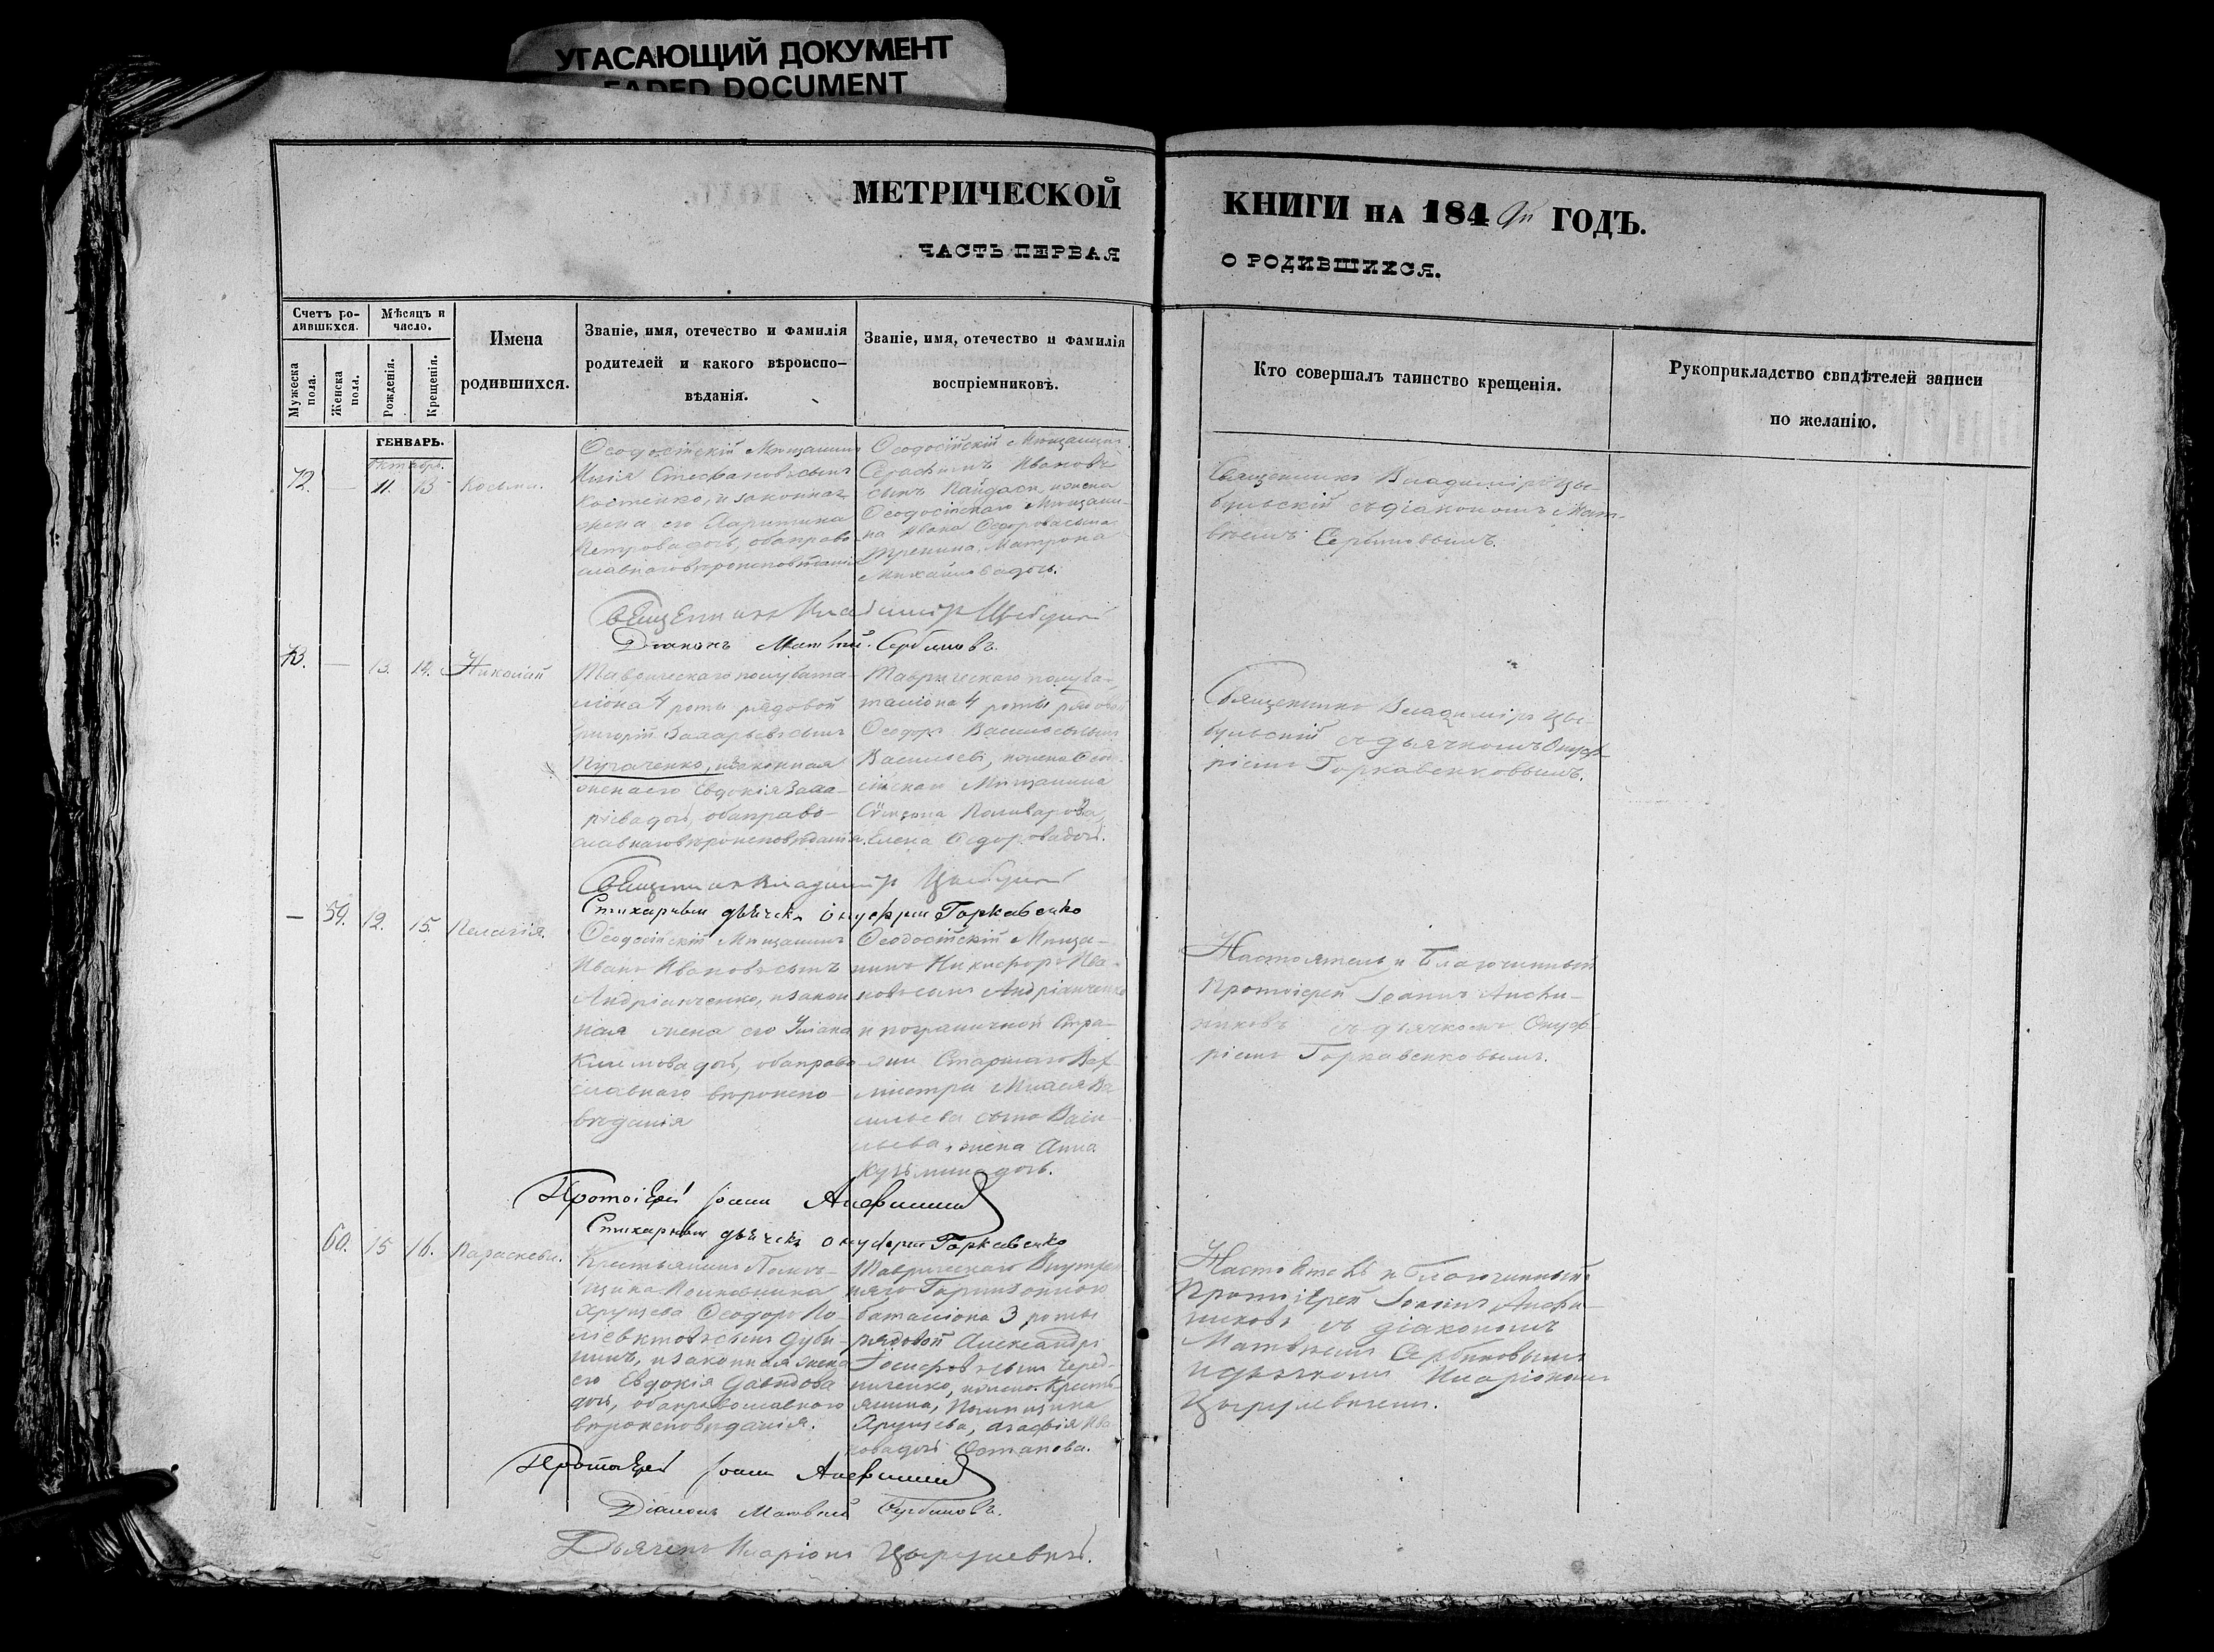 УГАСАЮЩИЙ ДОКУМЕНТ
FADED DOCUMENT
МЕТРИЧЕСКОЙ
ЧАСТЬ ПЕРВАЯ
КНИГИ на 184 ГОДЪ.
О РОДИВШИХСЯ.
Счетъ ро-
дившихся.
Мужеска
пола.
Женска
пола.
Мѣсяцъ и
число.
Рожденія.
Крещенія.
Имена
родившихся.
Званіе, имя, отечество и фамилія
родителей и какого вѣроиспо-
вѣданія.
Званіе, имя, отечество и фамилія
воспріемниковъ.
Кто совершалъ таинство крещенія.
Рукоприкладство свидѣтелей записи
по желанію.
ГЕНВАРЬ.
октябрь.
72.
—
11.
13
Косьма.
Ѳеодосійскій Мѣщанинъ
Илія Стефановъ сынъ
Костенко, и законная
жена его
Петрова дочь, оба право
славнаго вѣроисповѣданія
Ѳеодосійскій Мѣщанинъ
Ивановъ
сынъ жена
Ѳеодосійскаго Мѣщани-
на Ивана Ѳедорова сына
Матрона
Михайлова дочь.
Священникъ Владиміръ Цы-
бульскій съ діакономъ Мат-
вѣемъ Сербиновымъ.
Священникъ Владиміръ Цыбульскій
Діаконъ Матвій Сербиновъ.
73.
—
13.
14.
Николай
Таврическаго полубата-
ліона 4 роты рядовой
Григорій Захарьевъ сынъ
Пугаченко, и законная
жена его Евдокія Заха-
рieва дочь, оба право-
славнаго вѣроисповѣданія.
Таврическаго полуба-
таліона 4 роты рядовой
Ѳеодоръ Васильевъ сынъ
Васильевъ, и жена Ѳеодо-
сійскаго Мѣщанина
Елена Ѳедорова дочь.
Священникъ Владиміръ Цы-
бульскій съ дьячкомъ Онуф-
ріемъ Горкавенковымъ.
Священникъ Владиміръ Цыбульскій
Стихарный дьячекъ Онуфрій Горкавенко
—
59.
12.
15.
Пелагія.
Ѳеодосійскій Мѣщанинъ
Иванъ Ивановъ сынъ
Андріанченко, и закон
ная жена его Уліана
Климова дочь, оба право
славнаго вѣроиспо-
вѣданія
Ѳеодосійскій Мѣща-
нинъ Никифоръ Ива-
новъ сынъ Андріанченко
и пограничной Стра-
жи Старшаго Вах-
мистра Ва
сильева сына Васи
льева, жена Анна
Кузьмина дочь.
Настоятель и Благочинный
Протоіерей Іоаннъ
съ дьячкомъ Онуф-
ріемъ Горкавенковымъ.
Протоіерей Іоаннъ
Стихарный дьячекъ Онуфрій Горкавенко
60.
15
16.
Параскева.
Крестьянинъ Помѣ-
щика Полковника
Ѳеодоръ По-
лiевктовъ сынъ Дуби-
нинъ, и законная жена
его Евдокія Давидова
дочь, оба православнаго
вѣроисповѣданія.
Таврическаго Внутрен
няго Гарнизоннаго
баталіона 3 роты
рядовой Александръ
Іосифовъ сынъ Черед-
ниченко, и жена Кресть-
янина, Помѣщика
Агафія Ива
нова дочь Остапова.
Настоятель и благочинный
Протоіерей Іоаннъ
съ діакономъ
Матвѣемъ Сербиновымъ
и дьячкомъ Иларіономъ
Протоіерей Іоаннъ
Діаконъ Матвій Сербиновъ.
Дьячекъ Иларіонъ